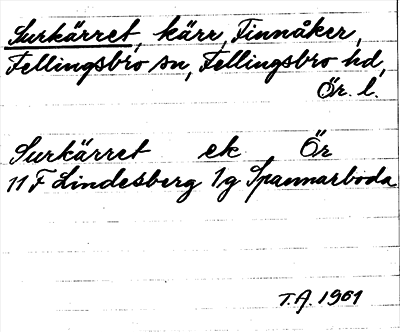 Surkärret, kärr, Finnåker,
Fellingsbro sn, Fellingsbro hd,
Ör. l.
Surkärret ek Ör
11 F Lindesberg 1g Spannarboda
T.A. 1961